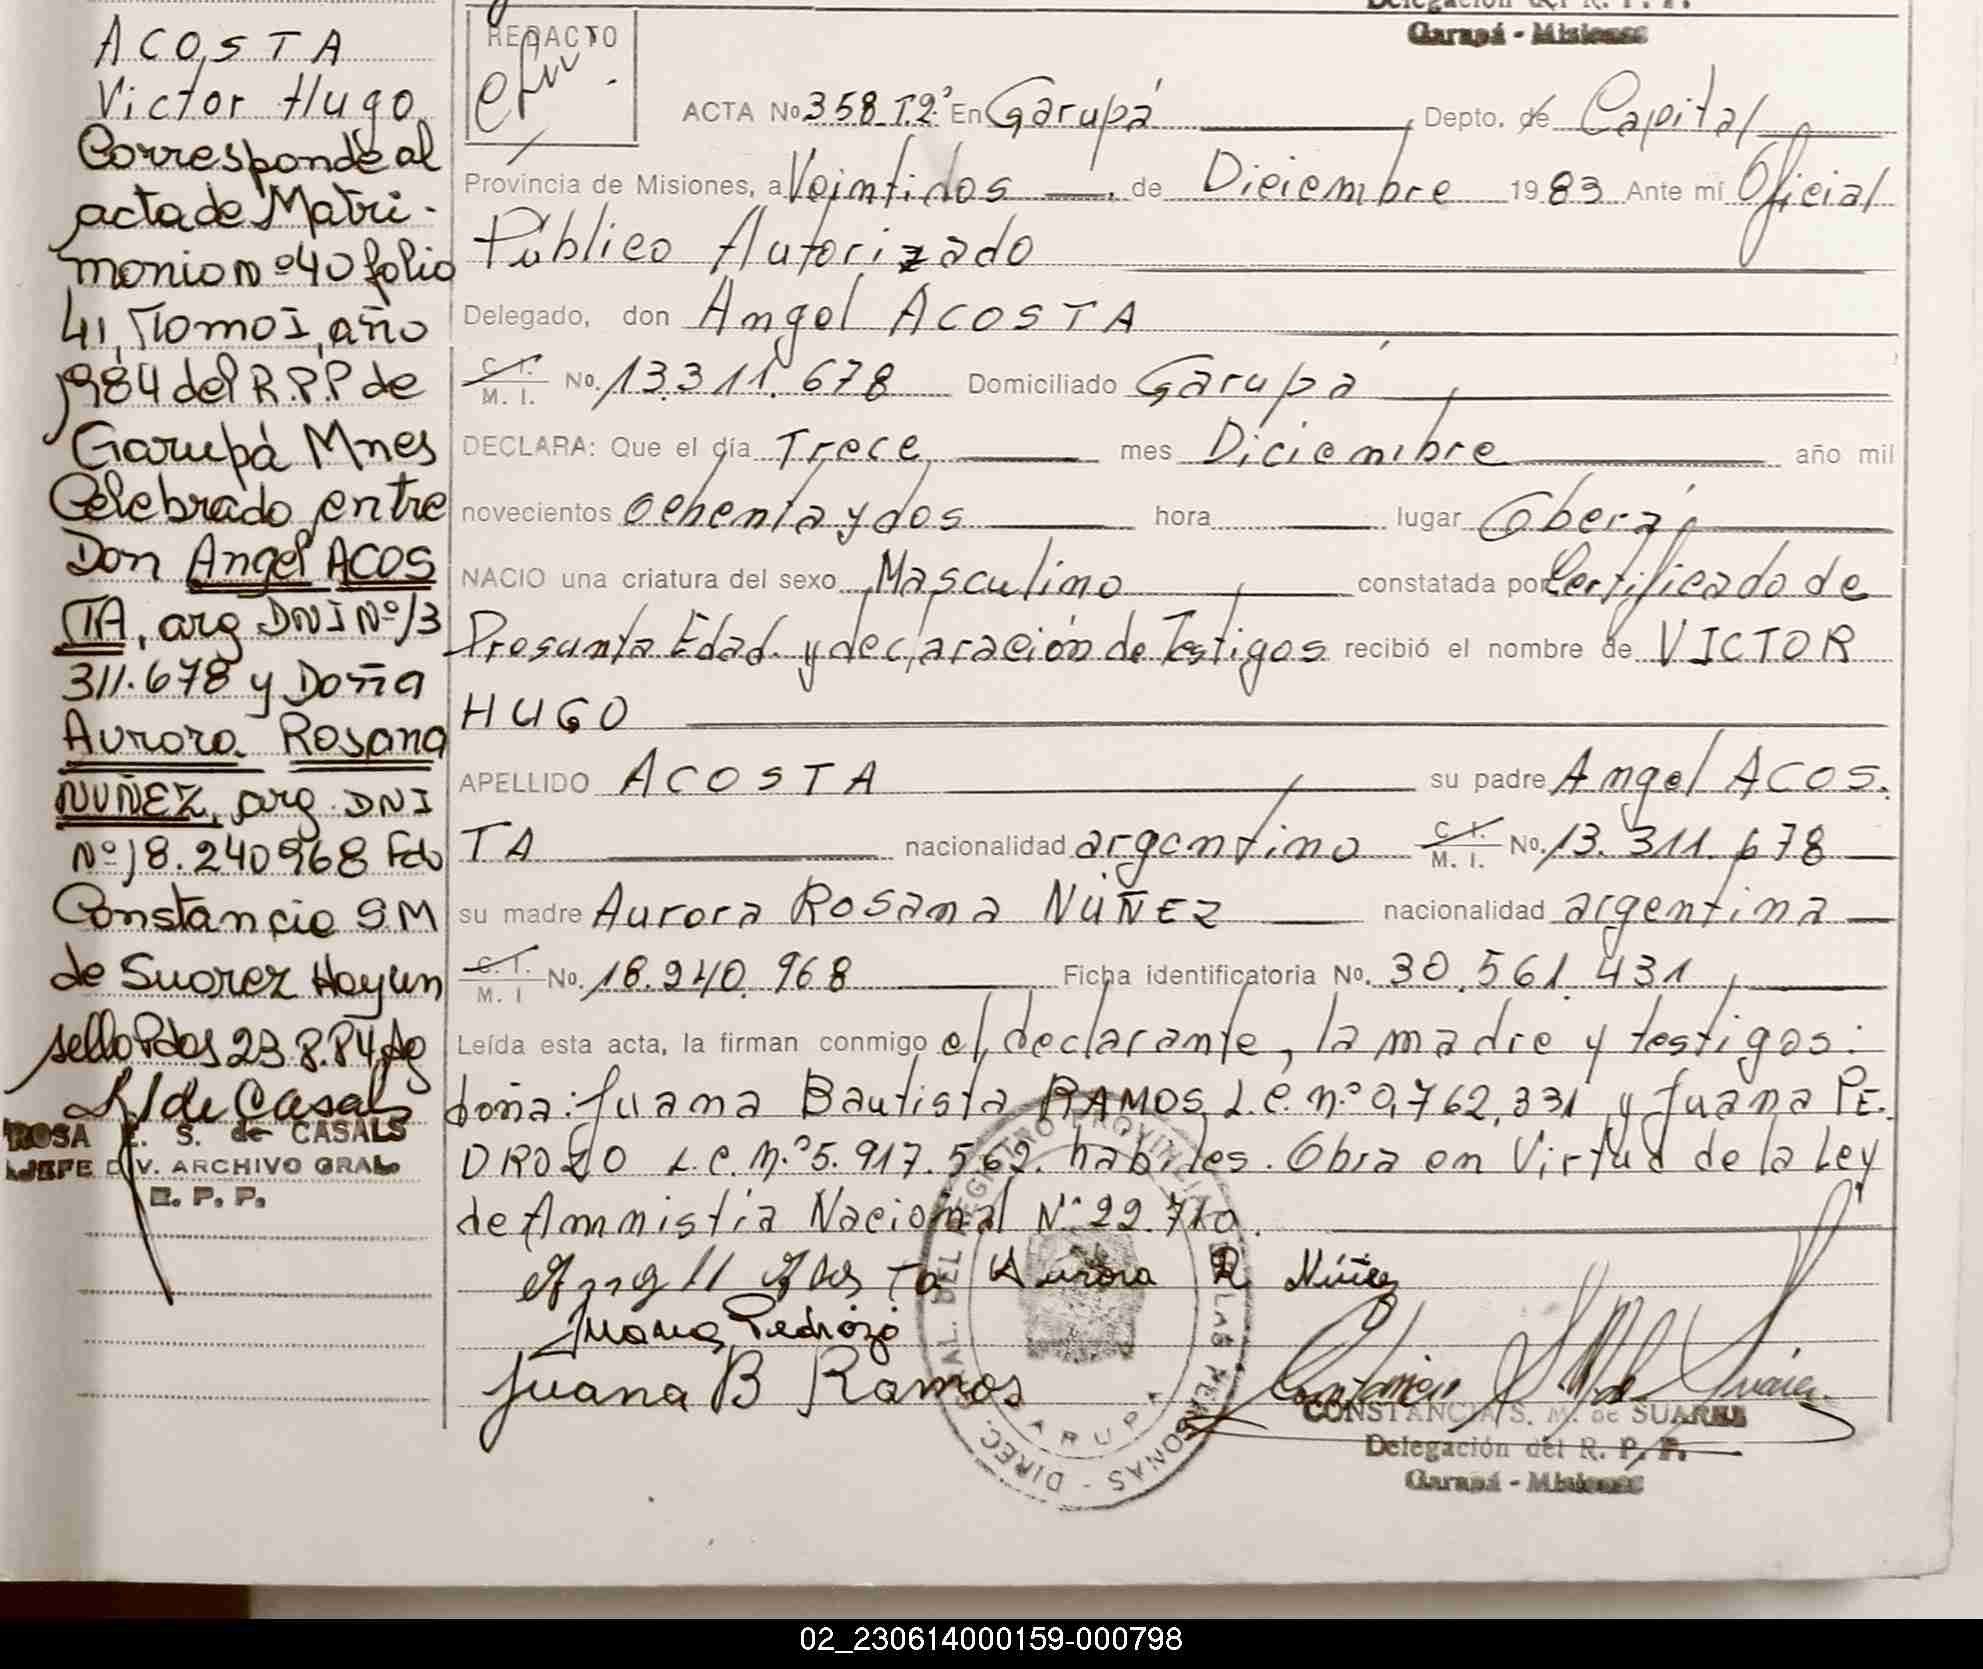 ACOSTA
Victor Hugo
Corresponde al
acta de Matri-
monio Nº 40 folio
41, Tomo I, año
1984 del R.P.P de
Garupá Mnes
Celebrado entre
Don Angel ACOS
TA, arg DNI Nº 13
311.678 y Doña
Aurora Rosana
NUÑEZ, arg. DNI
Nº 18.240968 Fdo
Constancia S M
de Suarez Hay un
sello Pdas 23.8.84
de Casals
ROSA E. S. de CASALS
JEFE DIV. ARCHIVO GRAL
R. P. P.
Delegación del R. P. P.
Garupá - Misiones
REDACTO
ACTA No 358 T.2º En Garupá Depto. de Capital
Provincia de Misiones, a Veintidos de Diciembre 1983 Ante mí Oficial
Público Autorizado
Delegado, don Angel ACOSTA
C. I. M. I. No. 13.311.678 Domiciliado Garupá
DECLARA: Que el día Trece mes Diciembre año mil
novecientos ochenta y dos hora lugar Oberá
NACIO una criatura del sexo Masculino constatada por Certificado de
Presunta Edad y declaración de Testigos recibió el nombre de VICTOR
HUGO
APELLIDO ACOSTA su padre Angel ACOS.
TA nacionalidad argentino C. I. M. I. No. 13.311.678
su madre Aurora Rosana NÚÑEZ nacionalidad argentina
C. I. M. I No. 18.240.968 Ficha identificatoria No. 30.561.431
Leída esta acta, la firman conmigo el declarante, la madre y testigos:
doña: Juana Bautista RAMOS, L.C. n.º 0,762,331 y Juana PE.
DROZO L.C. n.º 5.917.562. habiles. Obra en Virtud de la Ley
de Amnistía Nacional Nº 22.710.
Angel Acosta Aurora R Núñez
Juana Pedrozo
Juana B Ramos
DIREC. GRAL. DEL REGISTRO PROVINCIAL DE LAS PERSONAS
GARUPA
CONSTANCIA S. M. de SUAREZ
Delegación del R. P. P.
Garupá - Misiones
02_230614000159-000798